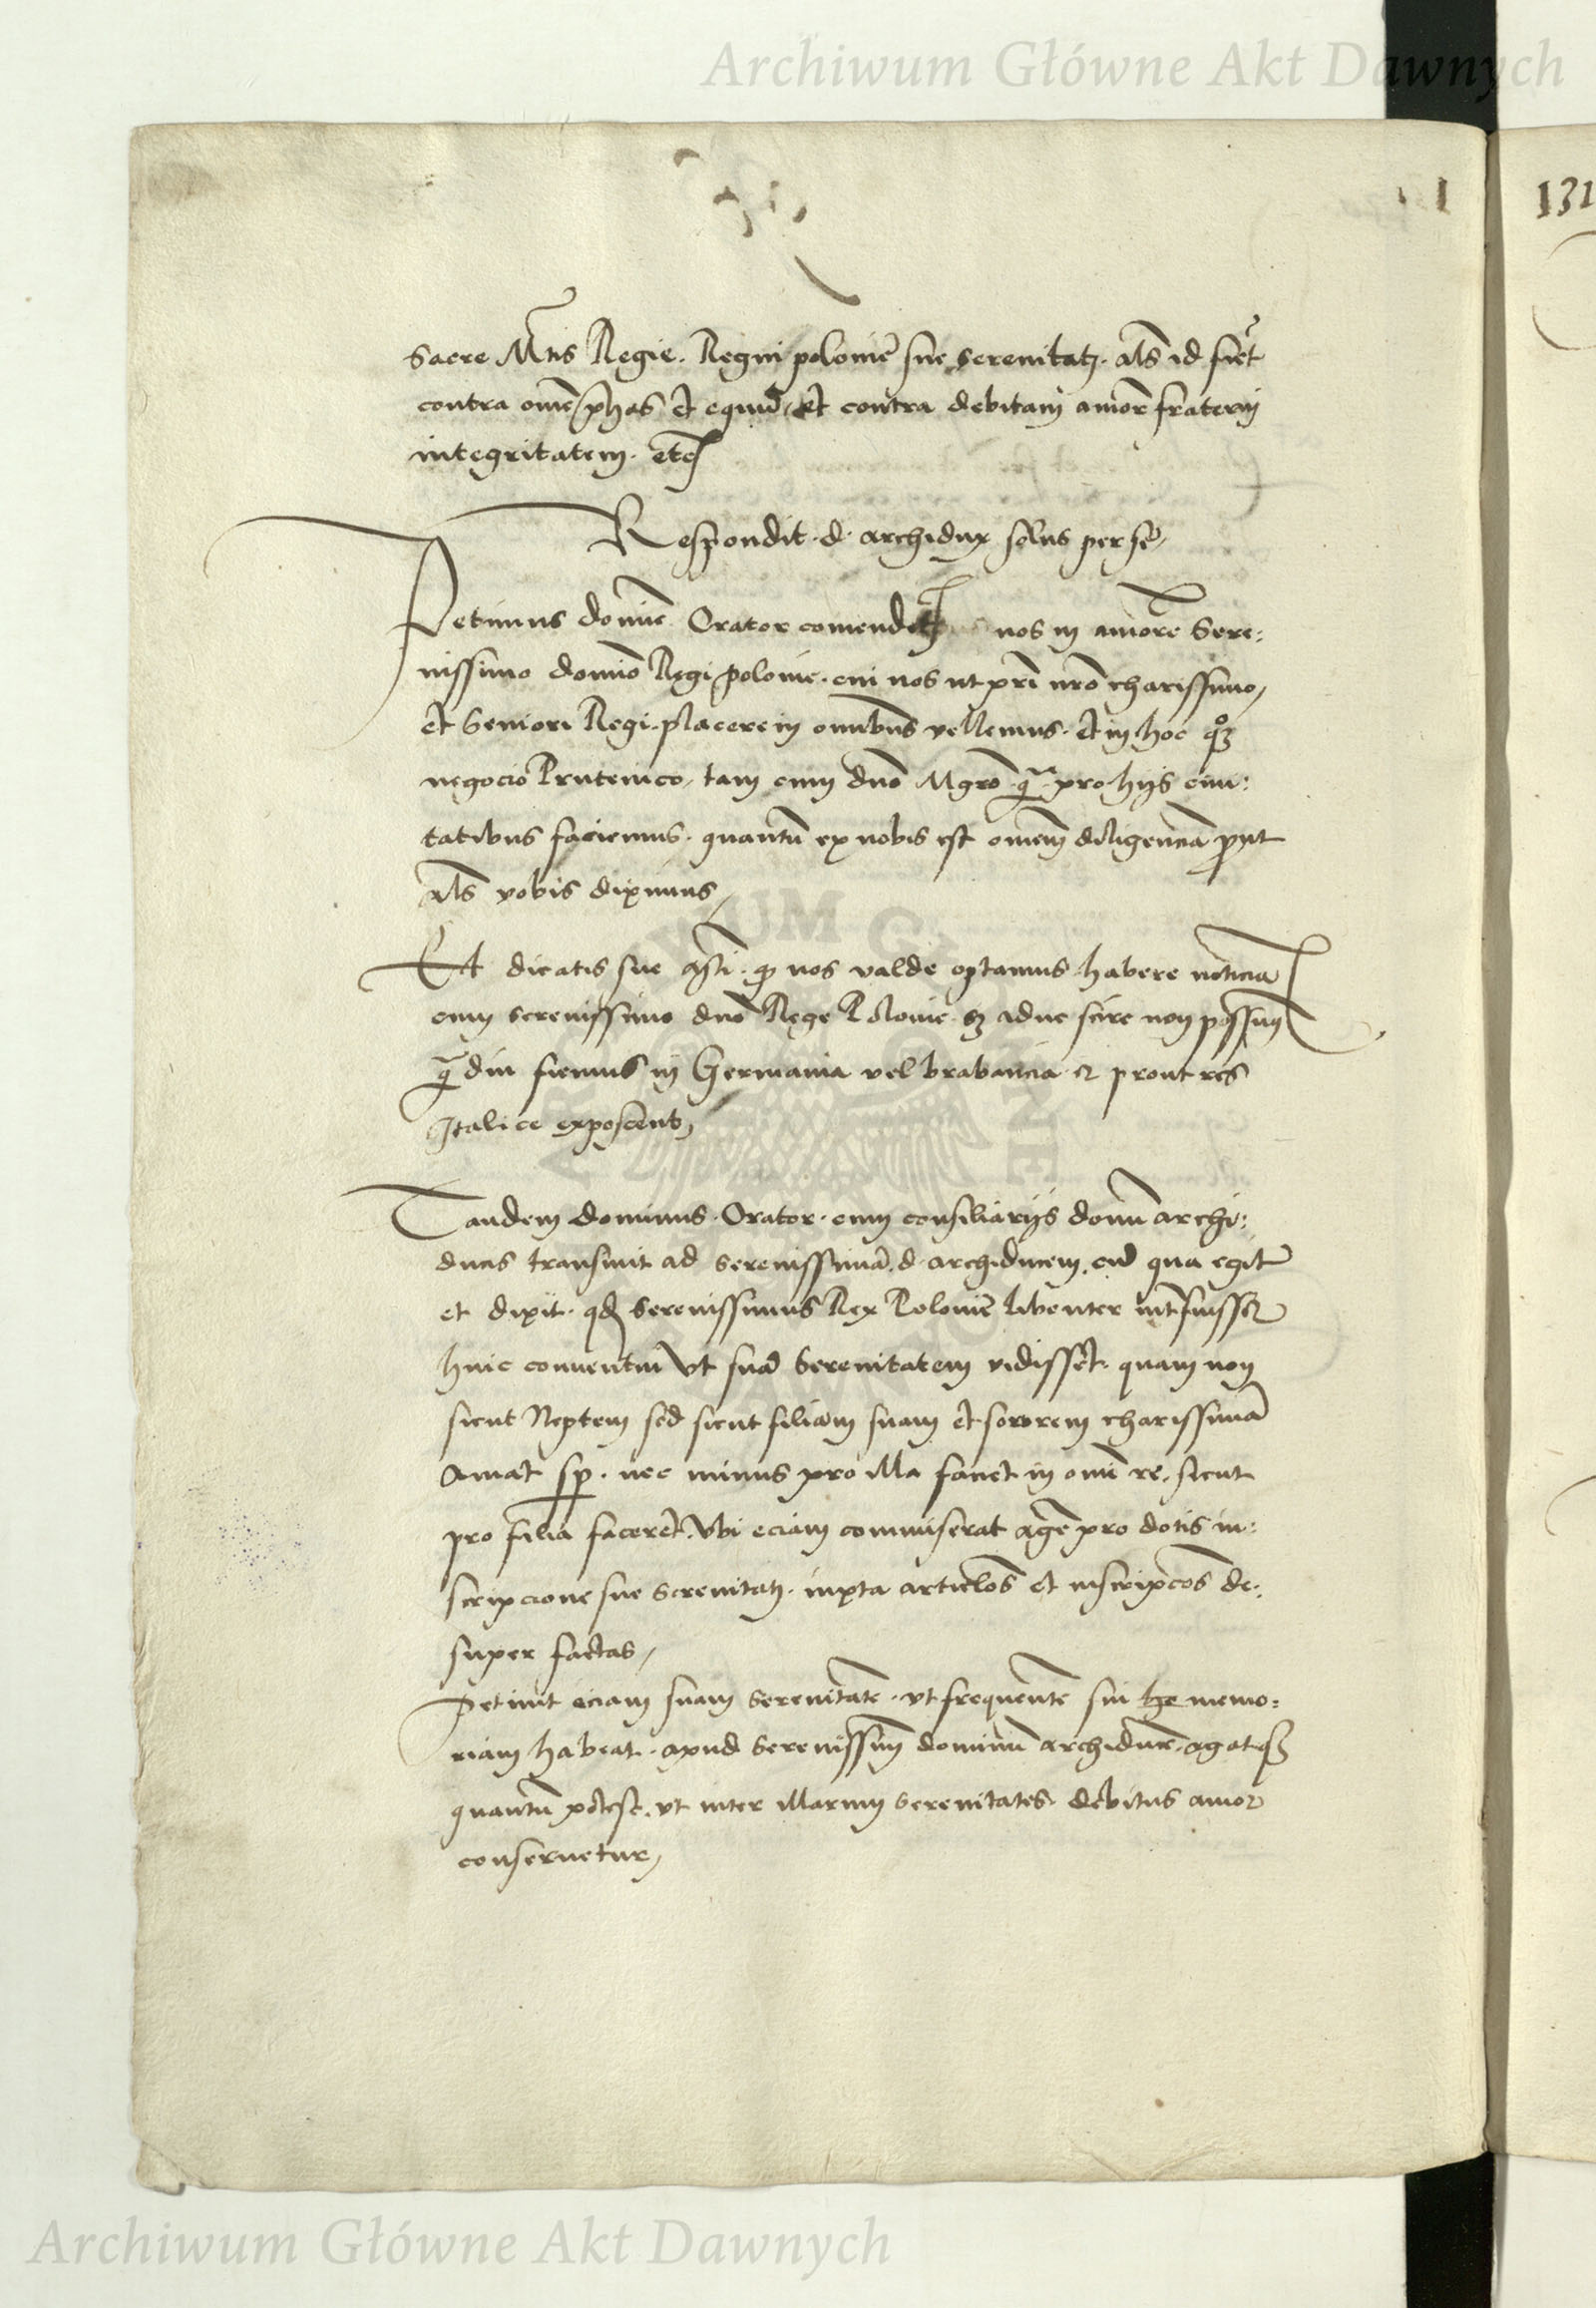 Archiwum Główne Akt Dawnych
131
Sacre Mtis Regie. Regni polonie sue serenitatz. als id fiet
contra omne phas et equum, et contra debitam amoris fraterni
integritatem. etc
Respondit. d. archidux solus per se,
Petimus domine Orator comendetis nos in amore Sere:
nissimo domino Regi polonie. cui nos ut pri nro charissimo,
et Seniori Regi. placere in omnibus vellemus. et in hoc qoz
negocio Prutenico, tam cum dno Mgro. q pro hijs civi:
tatibus faciemus. quantu ex nobis est omnem diligencia prout
als vobis diximus,
Et dicatis sue . q nos valde optamus habere noticia
cum serenissimo dno Rege Polonie. sz aduc scire non possum
q diu fiemus in Germania vel brabancia et prout res
Italice exposcent,
Tandem dominus. Orator. cum consiliarijs domini archi:
ducis transivit ad serenissima. d. archiducem. cum qua egit
et dixit. qd serenissimus Rex Polonie libenter intfuisset
huic conventui Ut sua Serenitatem vidisset. quam non
sicut Neptem sed sicut filiam suam et sororem charissima
amat sp. nec minus pro illa faciet in omni re, sicut
pro filia faceret. Ubi eciam commiserat agere pro dotis in:
scripcione sue serenitatz. iuxta articlos et inscripcos de:
super factas,
Petivit eciam suam serenitate. ut frequente sui memo:
riam habeat. apud Serenissim dominum archiduce. agatqz
quantu potest. ut inter illarum serenitates. debitus amor
conservetur,
Archiwum Główne Akt Dawnych